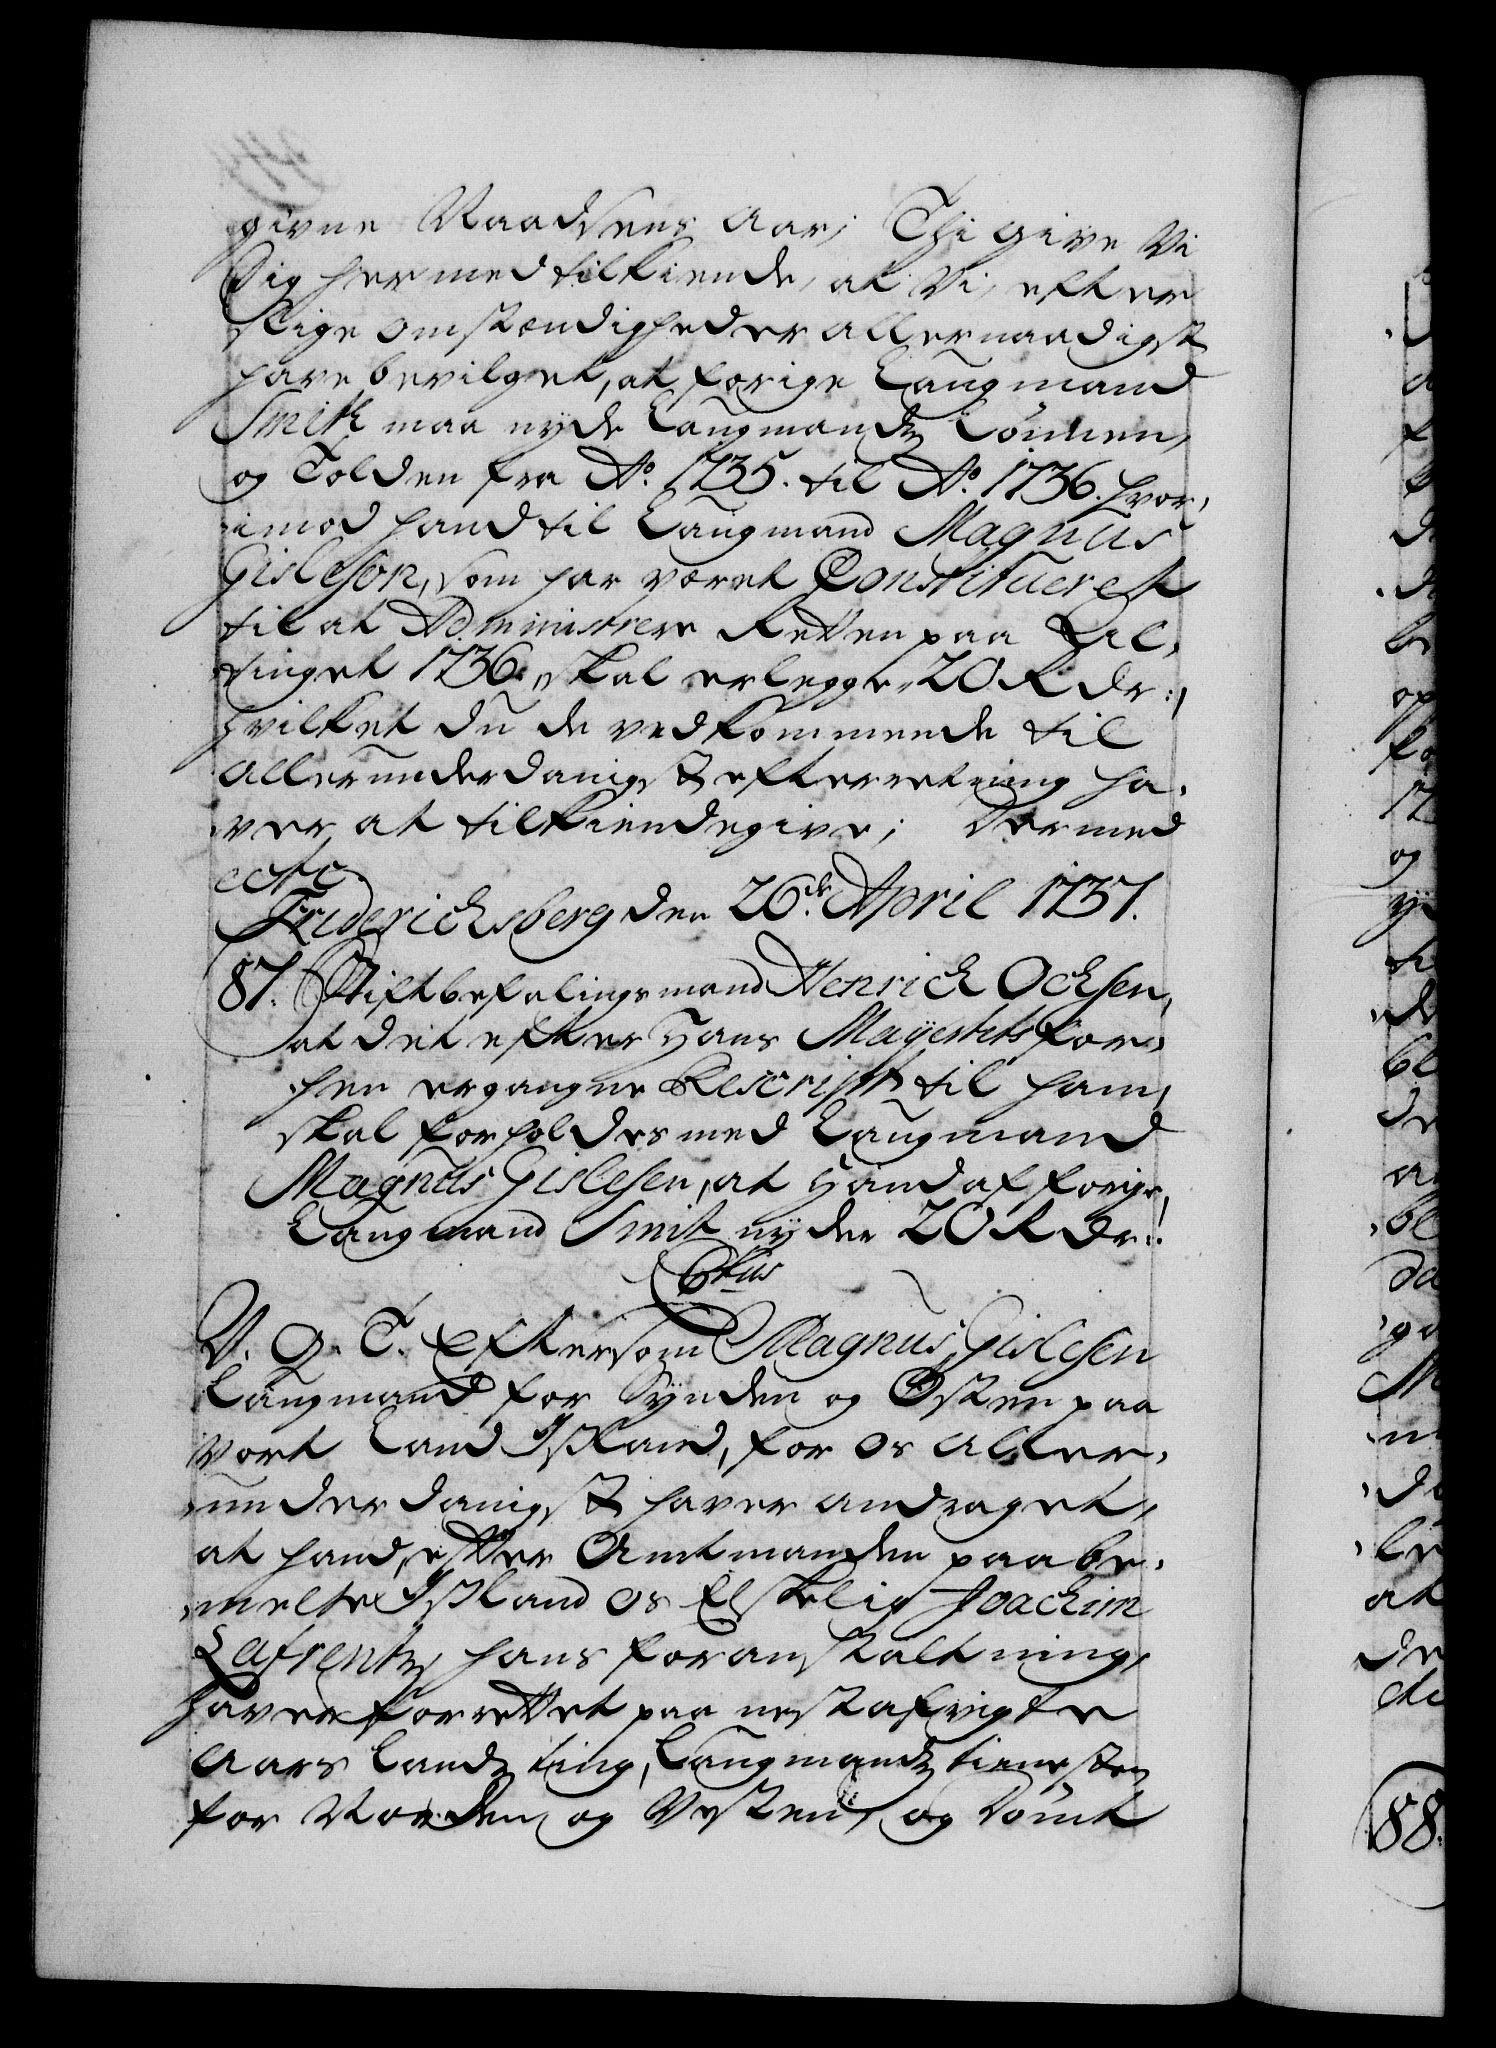 givne Naadsens Aar; Thi give Vi
Dig hermed tilkiende, at Vi, efter
slige omstændigheder allernaadigst
have bevilget, at forige Laugmand
Smith maa nyde Laugmands Lönnen,
og Tolden fra Ao. 1735. til Ao. 1736. hvor,
imod hand til Laugmand Magnus
Gisleson, som har været Constitueret
til at Administrere Retten paa Al,
tinget 1736, skal erlegge 20 Rdr:,
hvilket du de vedkommende til
allerunderdanigst efterretning ha,
ver at tilkiendegive; Dermed
ectc.
Friderichsberg den 26de April 1737.
87. Stiftbefalingsmand Henrich Ochsen,
at det efter Hans Mayestets for,
hen ergangne Rescript til ham,
skal forholdes med Laugmand
Magnus Gislesen, at Hand af forige
Laugmand Smit nyder 20 Rdr:
C6tus
V. G. T. Eftersom Magnus Gislesen
Laugmand for Synden og Østen paa
Vort Land Island, for os aller,
underdanigst haver andraget,
at hand, efter Amtmanden paa be,
melte Island os Elskelig Joachim
Lafrentz hans foranstaltning,
haver forrettet paa nestafvigte
Aars Lands ting, Laugmands tienesten
for Norden og Vesten, og Dömt
88.